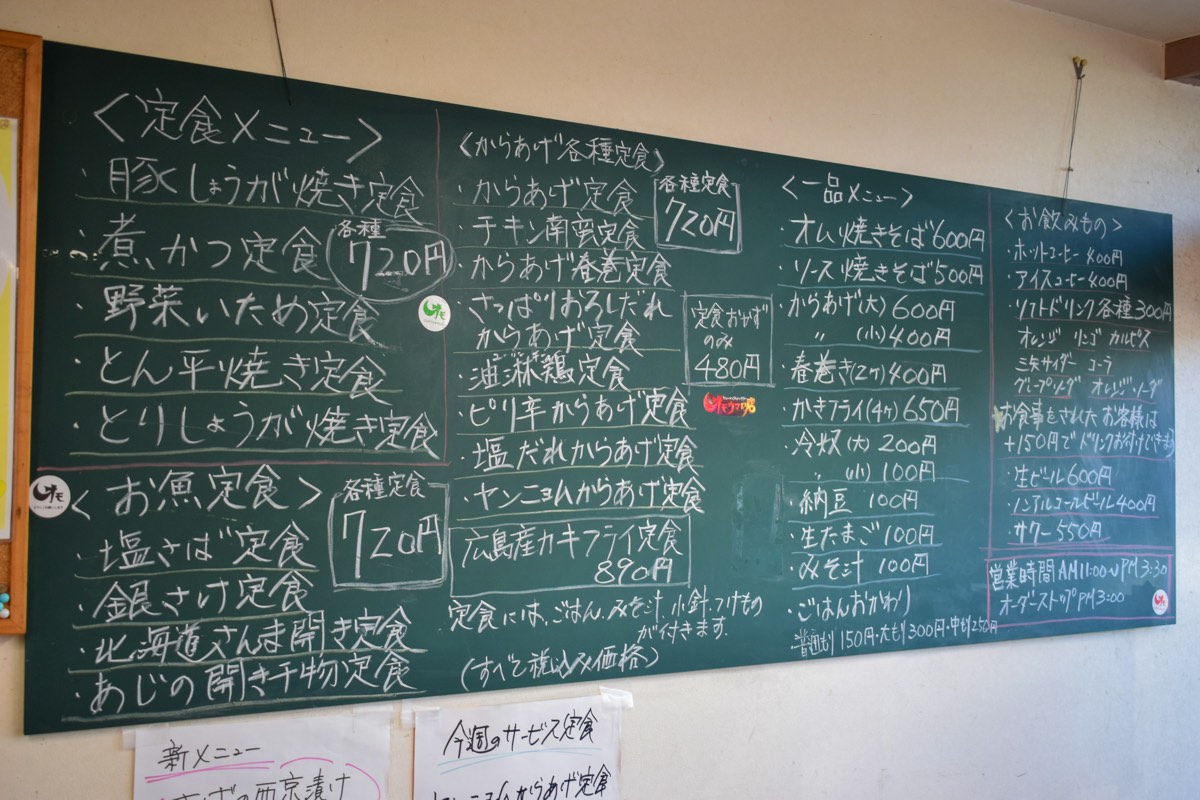 <定食メニュー>
・豚しょうが焼き定食
・煮かつ定食
各種
720円
・野菜いため定食
・とん平焼き定食
・とりしょうが焼き定食
<お魚定食>
各種定食
720円
・塩さば定食
・銀さけ定食
・北海道さんま開き定食
・あじの開き干物定食
<からあげ各種定食>
各種定食
720円
・からあげ定食
・チキン南蛮定食
・からあげ春巻定食
・さっぱりおろしだれ
からあげ定食
定食おかず
のみ
480円
・油淋鶏定食
・ピリ辛からあげ定食
・塩だれからあげ定食
・ヤンニョムからあげ定食
広島産カキフライ定食
890円
定食には、ごはん、みそ汁、小鉢、つけもの
が付きます。
(すべて税込み価格)
<一品メニュー>
・オム焼きそば600円
・ソース焼きそば500円
・からあげ(大)600円
〃 (小)400円
・春巻き(2ケ)400円
・かきフライ(4ケ)650円
・冷奴(大)200円
〃 (小)100円
・納豆 100円
・生たまご100円
・みそ汁 100円
・ごはんおかわり
普通もり150円・大もり300円・中もり250円
<お飲みもの>
・ホットコーヒー400円
・アイスコーヒー400円
・ソフトドリンク各種300円
オレンジ リンゴ カルピス
三矢サイダー コーラ
グレープソーダ オレンジソーダ
お食事をされたお客様は
+150円でドリンクお付けできます
・生ビール600円
・ノンアルコールビール400円
・サワー550円
営業時間AM11:00~PM3:30
オーダーストップPM3:00
新メニュー
今週のサービス定食
ヤンニョムからあげ定食